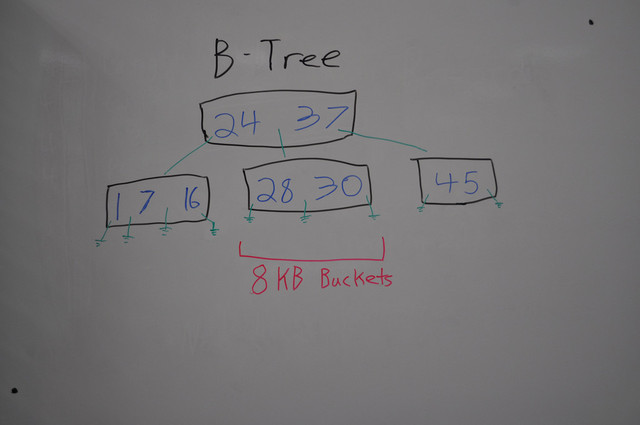 B-Tree
24 37
1 7 16
28 30
45
8KB Buckets